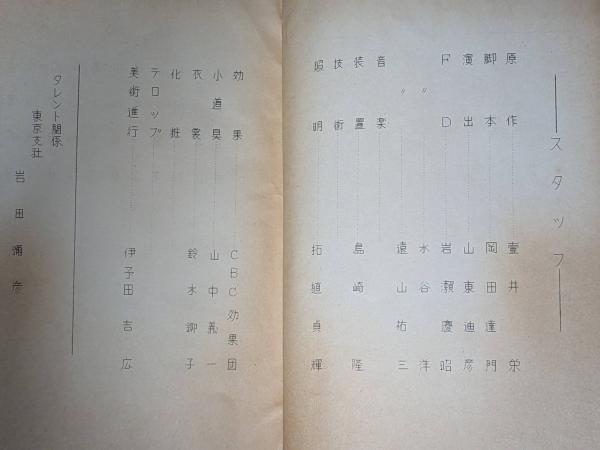 スタッフ
原作 壹井栄
脚本 岡田達門
演出 山東迪彦
FD 岩瀬慶昭
〃 水谷洋
〃 遠山祐三
音楽
装置 島崎隆
技術
照明 拓植貞輝
効果 CBC効果団
小道具 山中義一
衣裳 鈴木御子
化粧
テロップ
美術進行 伊予田吉広
タレント関係
東京支社
岩田彌彦